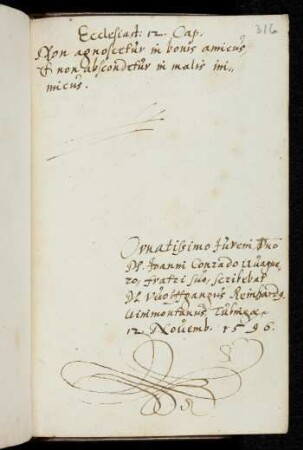 316
Ecclesiast: 12. Cap.
Non agnoscetur in bonis amicus
& non abscondetur in malis ini-
micus.
Ornatissimo Iuveni, Dno
M. Ioanni Conrado
fratri suo, scribebat
M. Wolffgangus Reinhardus
Tubingae
12 Novemb. 1596.